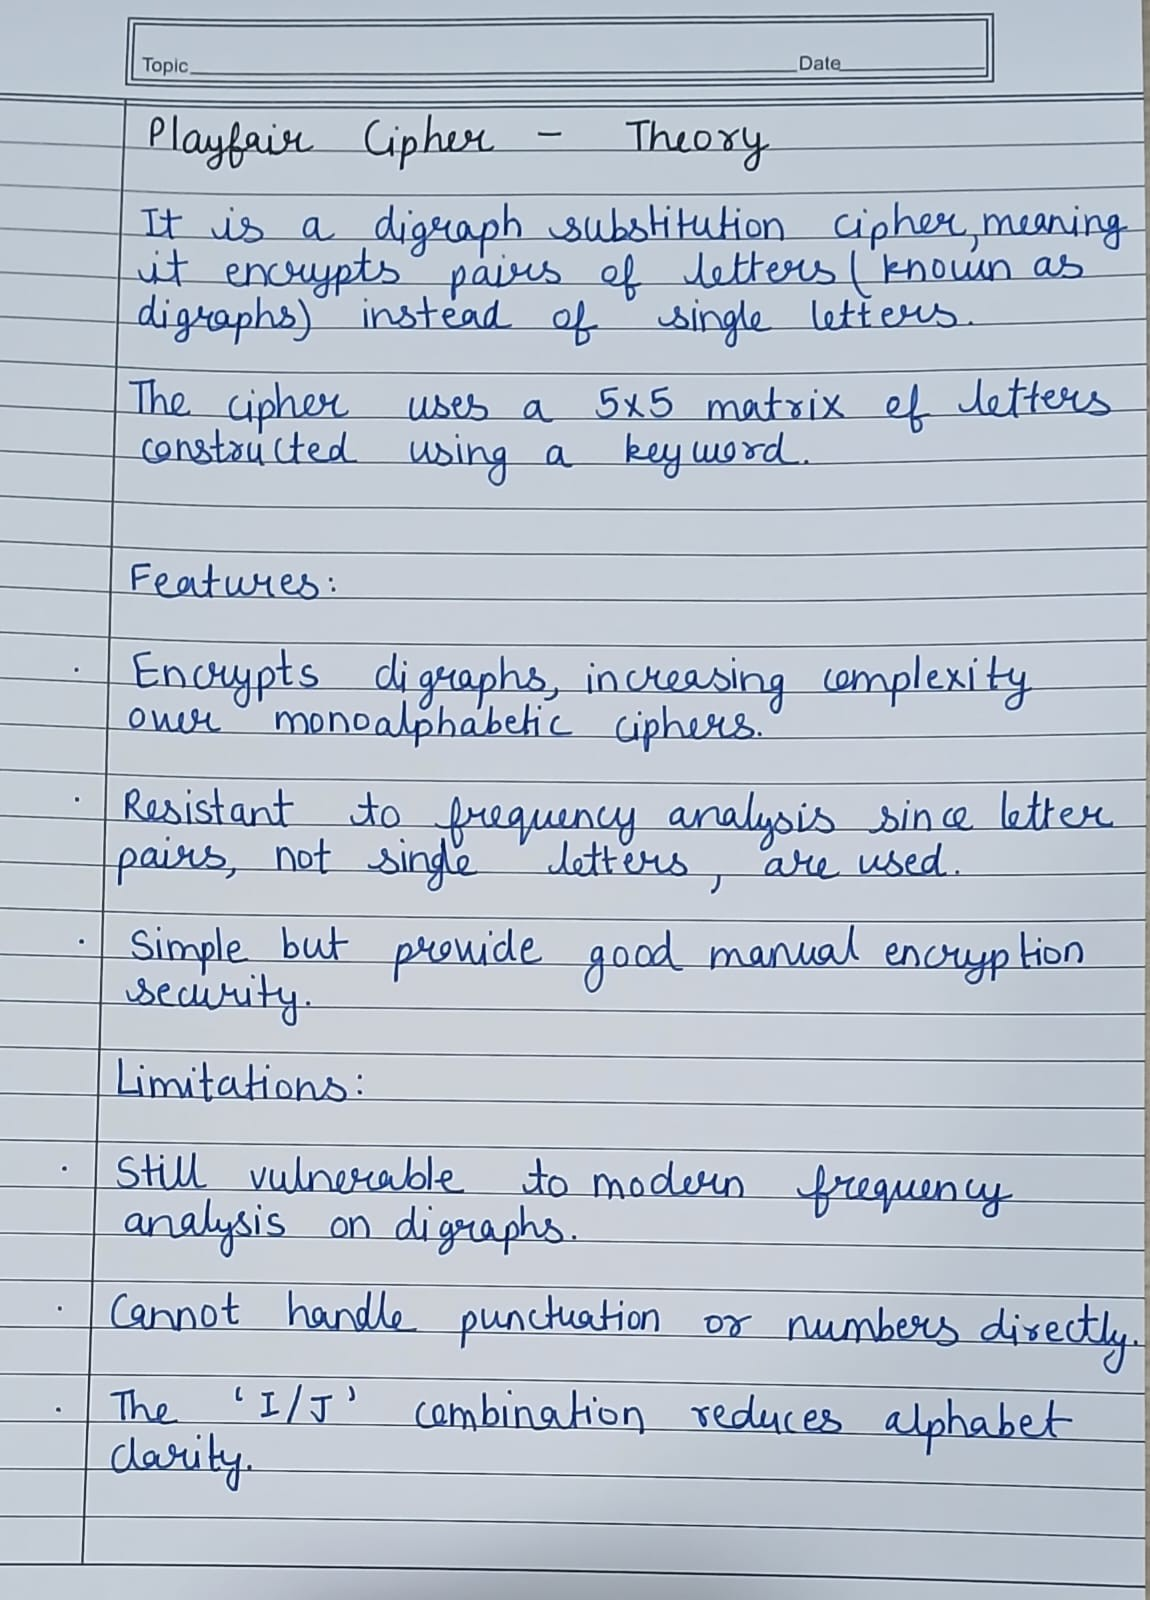 Topic Date
Playfair Cipher - Theory
It is a digraph substitution cipher, meaning
it encrypts pairs of letters (known as
digraphs) instead of single letters.
The cipher uses a 5x5 matrix of letters
constructed using a keyword.
Features:
· Encrypts digraphs, increasing complexity
over monoalphabetic ciphers.
· Resistant to frequency analysis since letter
pairs, not single letters, are used.
· Simple but provide good manual encryption
security.
Limitations:
· Still vulnerable to modern frequency
analysis on digraphs.
· Cannot handle punctuation or numbers directly.
· The 'I/J' combination reduces alphabet
clarity.